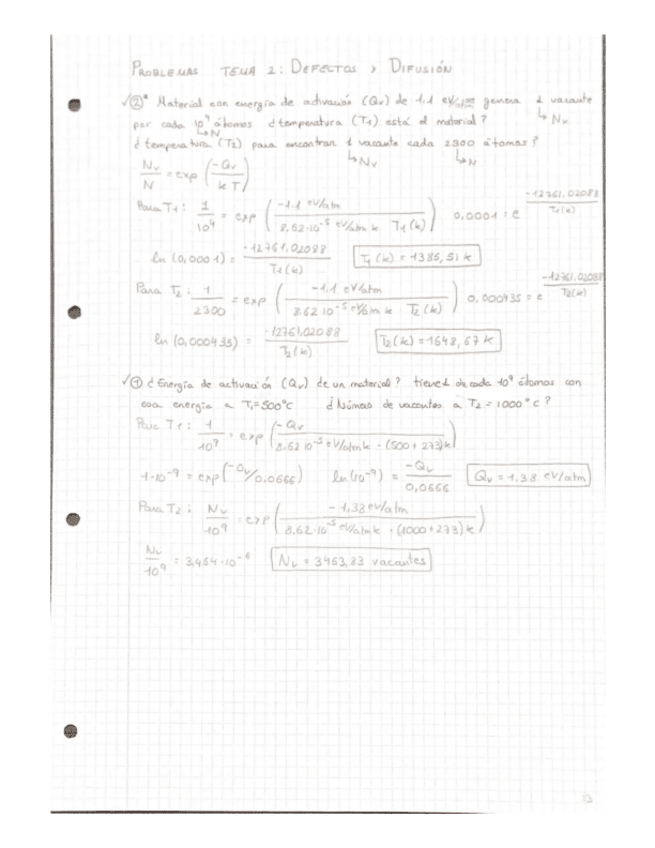 PROBLEMAS TEMA 2: DEFECTOS Y DIFUSIÓN
√②* Material con energía de activación (Qv) de 1.1 eV/atm genera 1 vacante
por cada 10⁴ átomos ¿temperatura (T1) está el material?
↳N ↳Nv
¿temperatura (T2) para encontrar 1 vacante cada 2300 átomos?
↳Nv ↳N
Nv/N = exp (-Qv/kT)
Para T1: 1/10⁴ = exp (-1.1 eV/atm / 8,62·10⁻⁵ eV/atm k T1(k)) 0,0001 = e^(-12761,02088/T1(k))
ln (0,0001) = -12761,02088/T1(k) T1(k) = 1385,51 k
Para T2: 1/2300 = exp (-1,1 eV/atm / 8.62 10⁻⁵ eV/atm k T2(k)) 0,000435 = e^(-12761,02088/T2(k))
ln (0,000435) = -12761,02088/T2(k) T2(k) = 1648,67 k
√① ¿Energía de activación (Qv) de un material? tiene 1 de cada 10⁹ átomos con
esa energía a T1=500°C ¿Número de vacantes a T2 = 1000°C?
Para T1: 1/10⁹ = exp (-Qv / 8.62 10⁻⁵ eV/atm k · (500+273)k)
1·10⁻⁹ = exp(-Qv/0,0666) ln(10⁻⁹) = -Qv/0,0666 Qv = 1,38 eV/atm
Para T2: Nv/10⁹ = exp (-1,38 eV/atm / 8,62·10⁻⁵ eV/atm k · (1000+273)k)
Nv/10⁹ = 3,454·10⁻⁶ Nv = 3453,83 vacantes